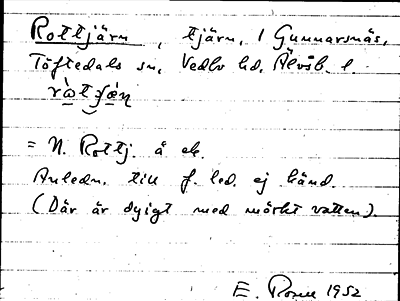 Rottjärn, tjärn, i Gunnarsnäs,
Töftedals sn, Vedbo hd, Älvsb. l.
= N. Rottj. å ek.
Anledn. till f. led. ej känd.
(Där är dyigt med mörkt vatten).
E. Rosen 1952